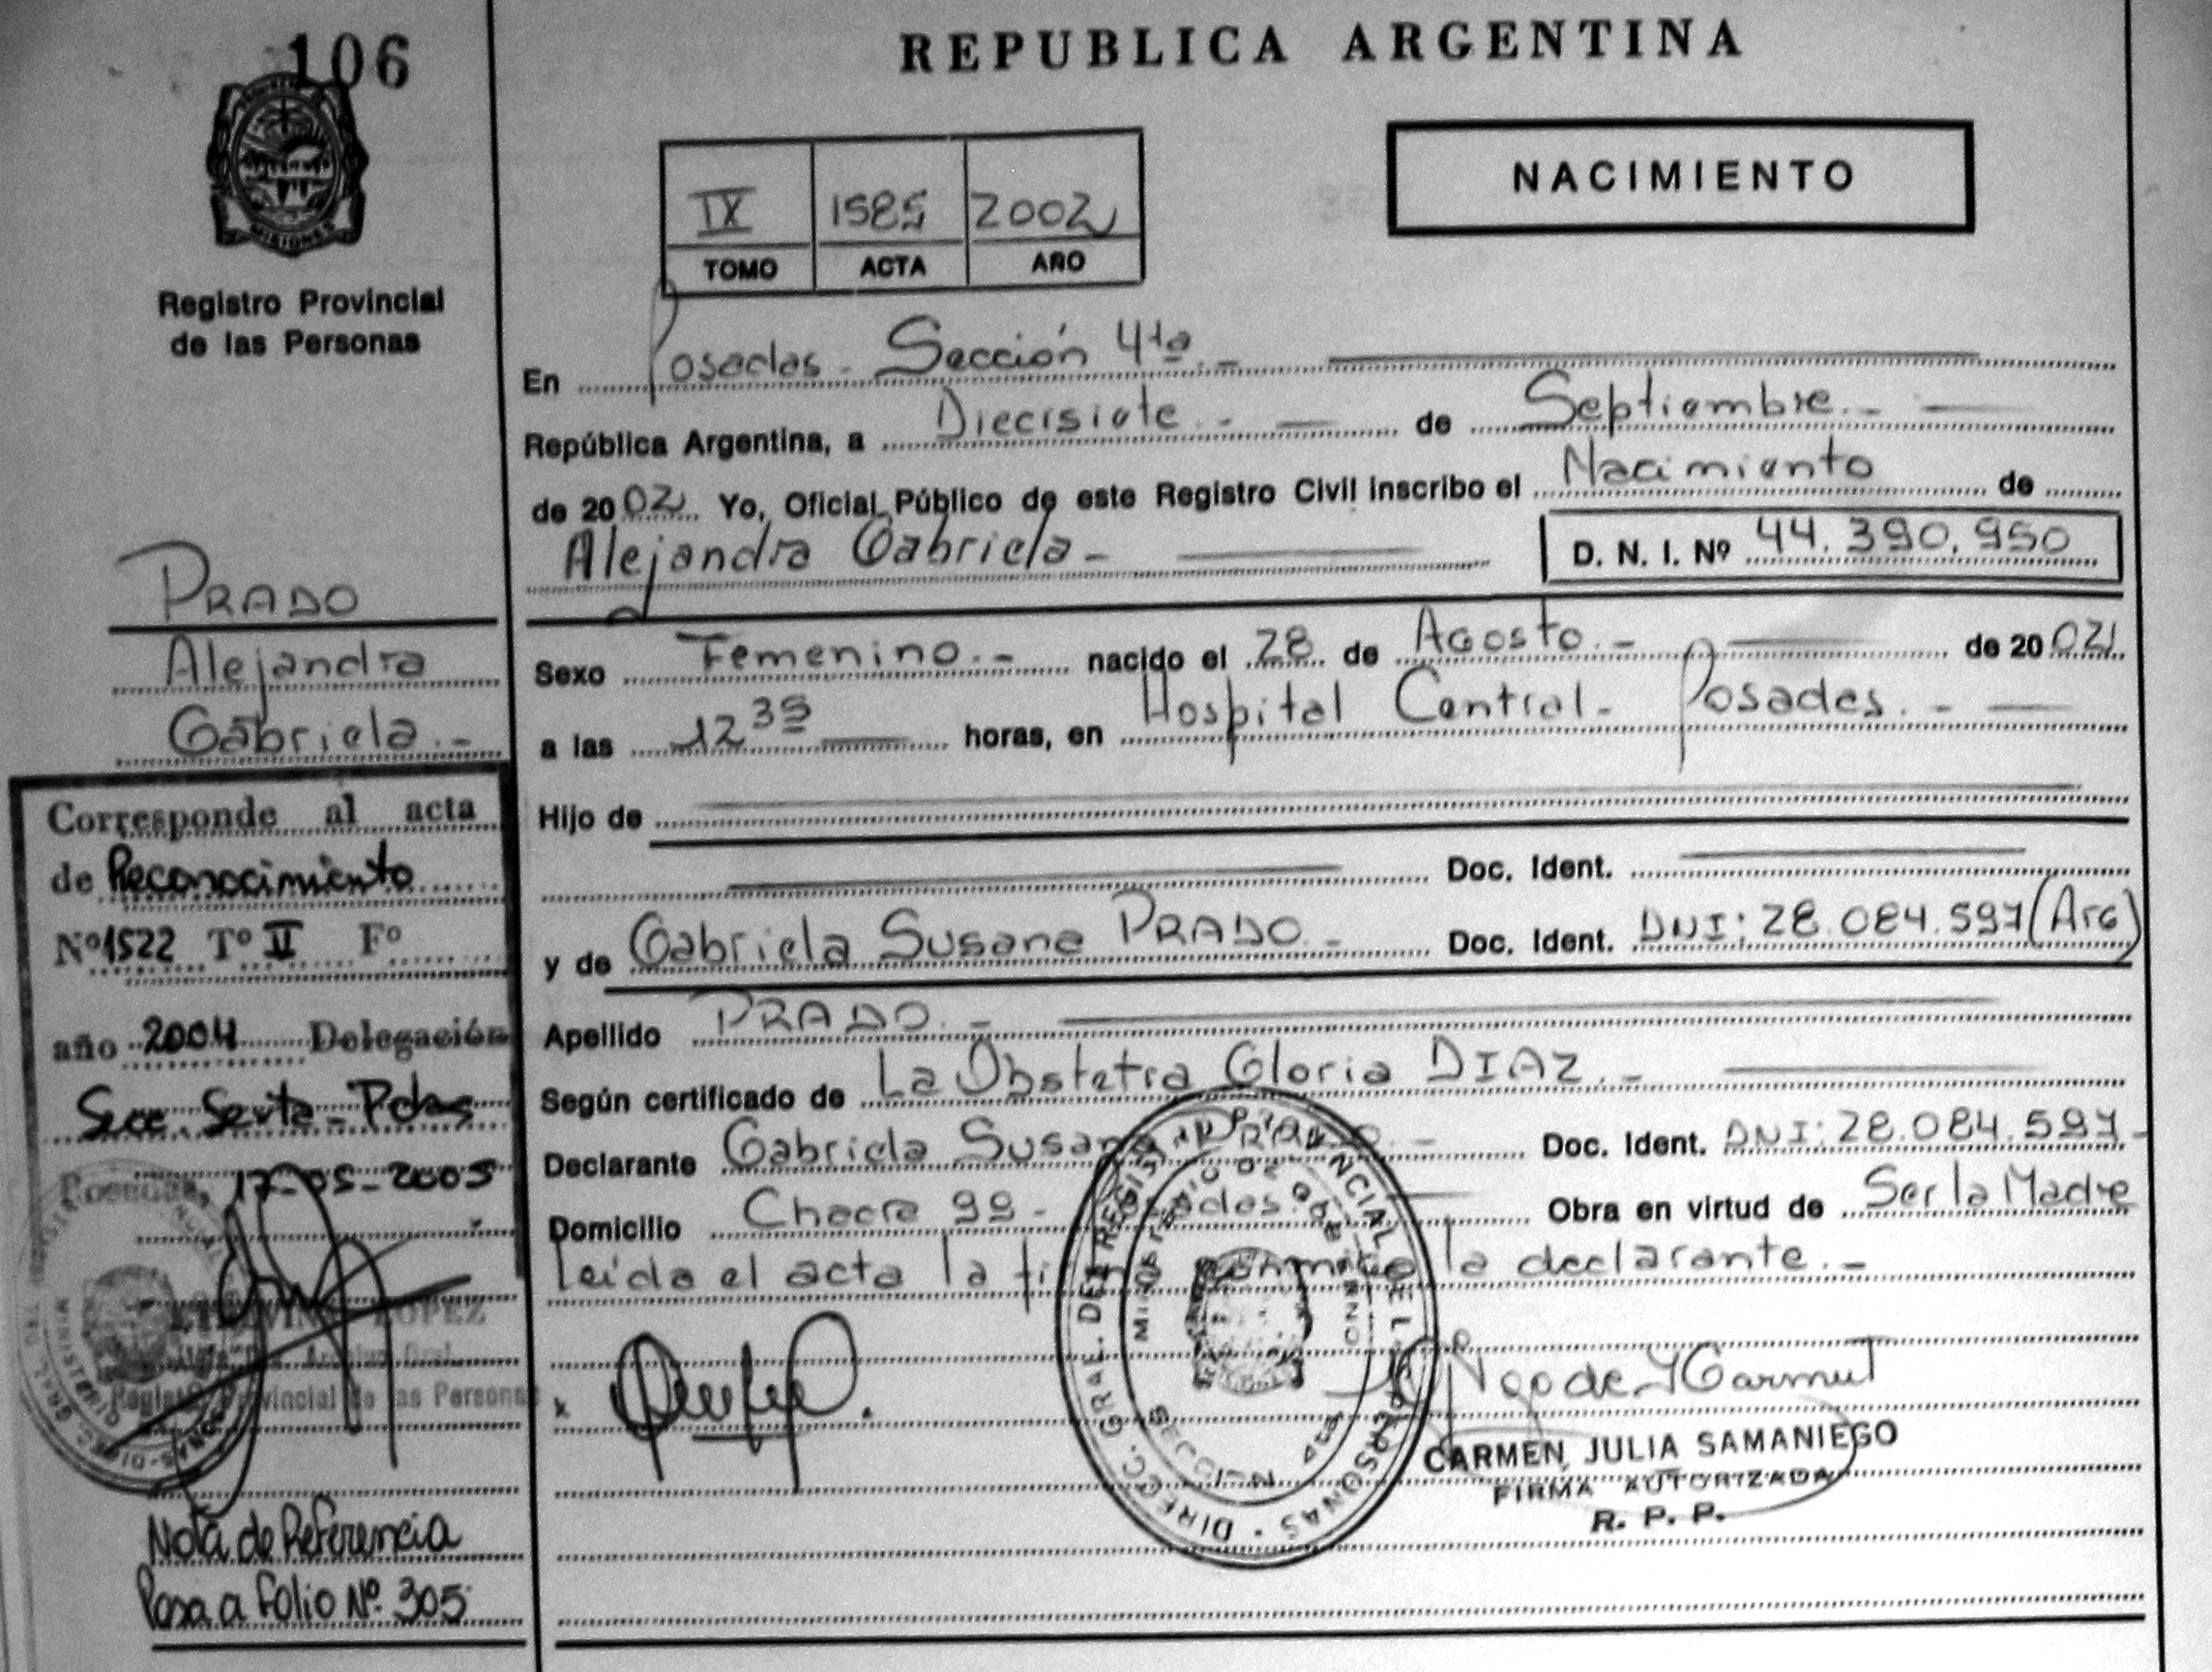 106
REPUBLICA ARGENTINA
MISIONES
Registro Provincial
de las Personas
IX 1585 2002
TOMO ACTA AÑO
NACIMIENTO
En Posadas - Sección 4ta.-
República Argentina, a Diecisiete.- de Septiembre.-
de 2002 Yo, Oficial Público de este Registro Civil inscribo el Nacimiento de
Alejandra Gabriela- D. N. I. Nº 44.390.950
Sexo Femenino.- nacido el 28 de Agosto.- de 2002
a las 12 35 horas, en Hospital Central- Posadas.-
Hijo de
Doc. Ident.
y de Gabriela Susana PRADO.- Doc. Ident. DNI: 28.084.597 (Arg)
Apellido PRADO.-
Según certificado de La Obstetra Gloria DIAZ.-
Declarante Gabriela Susana PRADO.- Doc. Ident. DNI: 28.084.597-
Domicilio Chacra 99- Posadas.- Obra en virtud de Ser la Madre
Leida el acta la firma la declarante.-
CARMEN JULIA SAMANIEGO
FIRMA AUTORIZADA
R. P. P.
PRADO
Alejandra
Gabriela.-
Corresponde al acta
de Reconocimiento
Nº 1522 Tº II Fº
año 2004 Delegación
Secc. Sexta- Pdas
Posadas, 17-05-2005
LOPEZ
Registro Provincial de las Personas
Nota de Referencia
Pasa a folio Nº 305